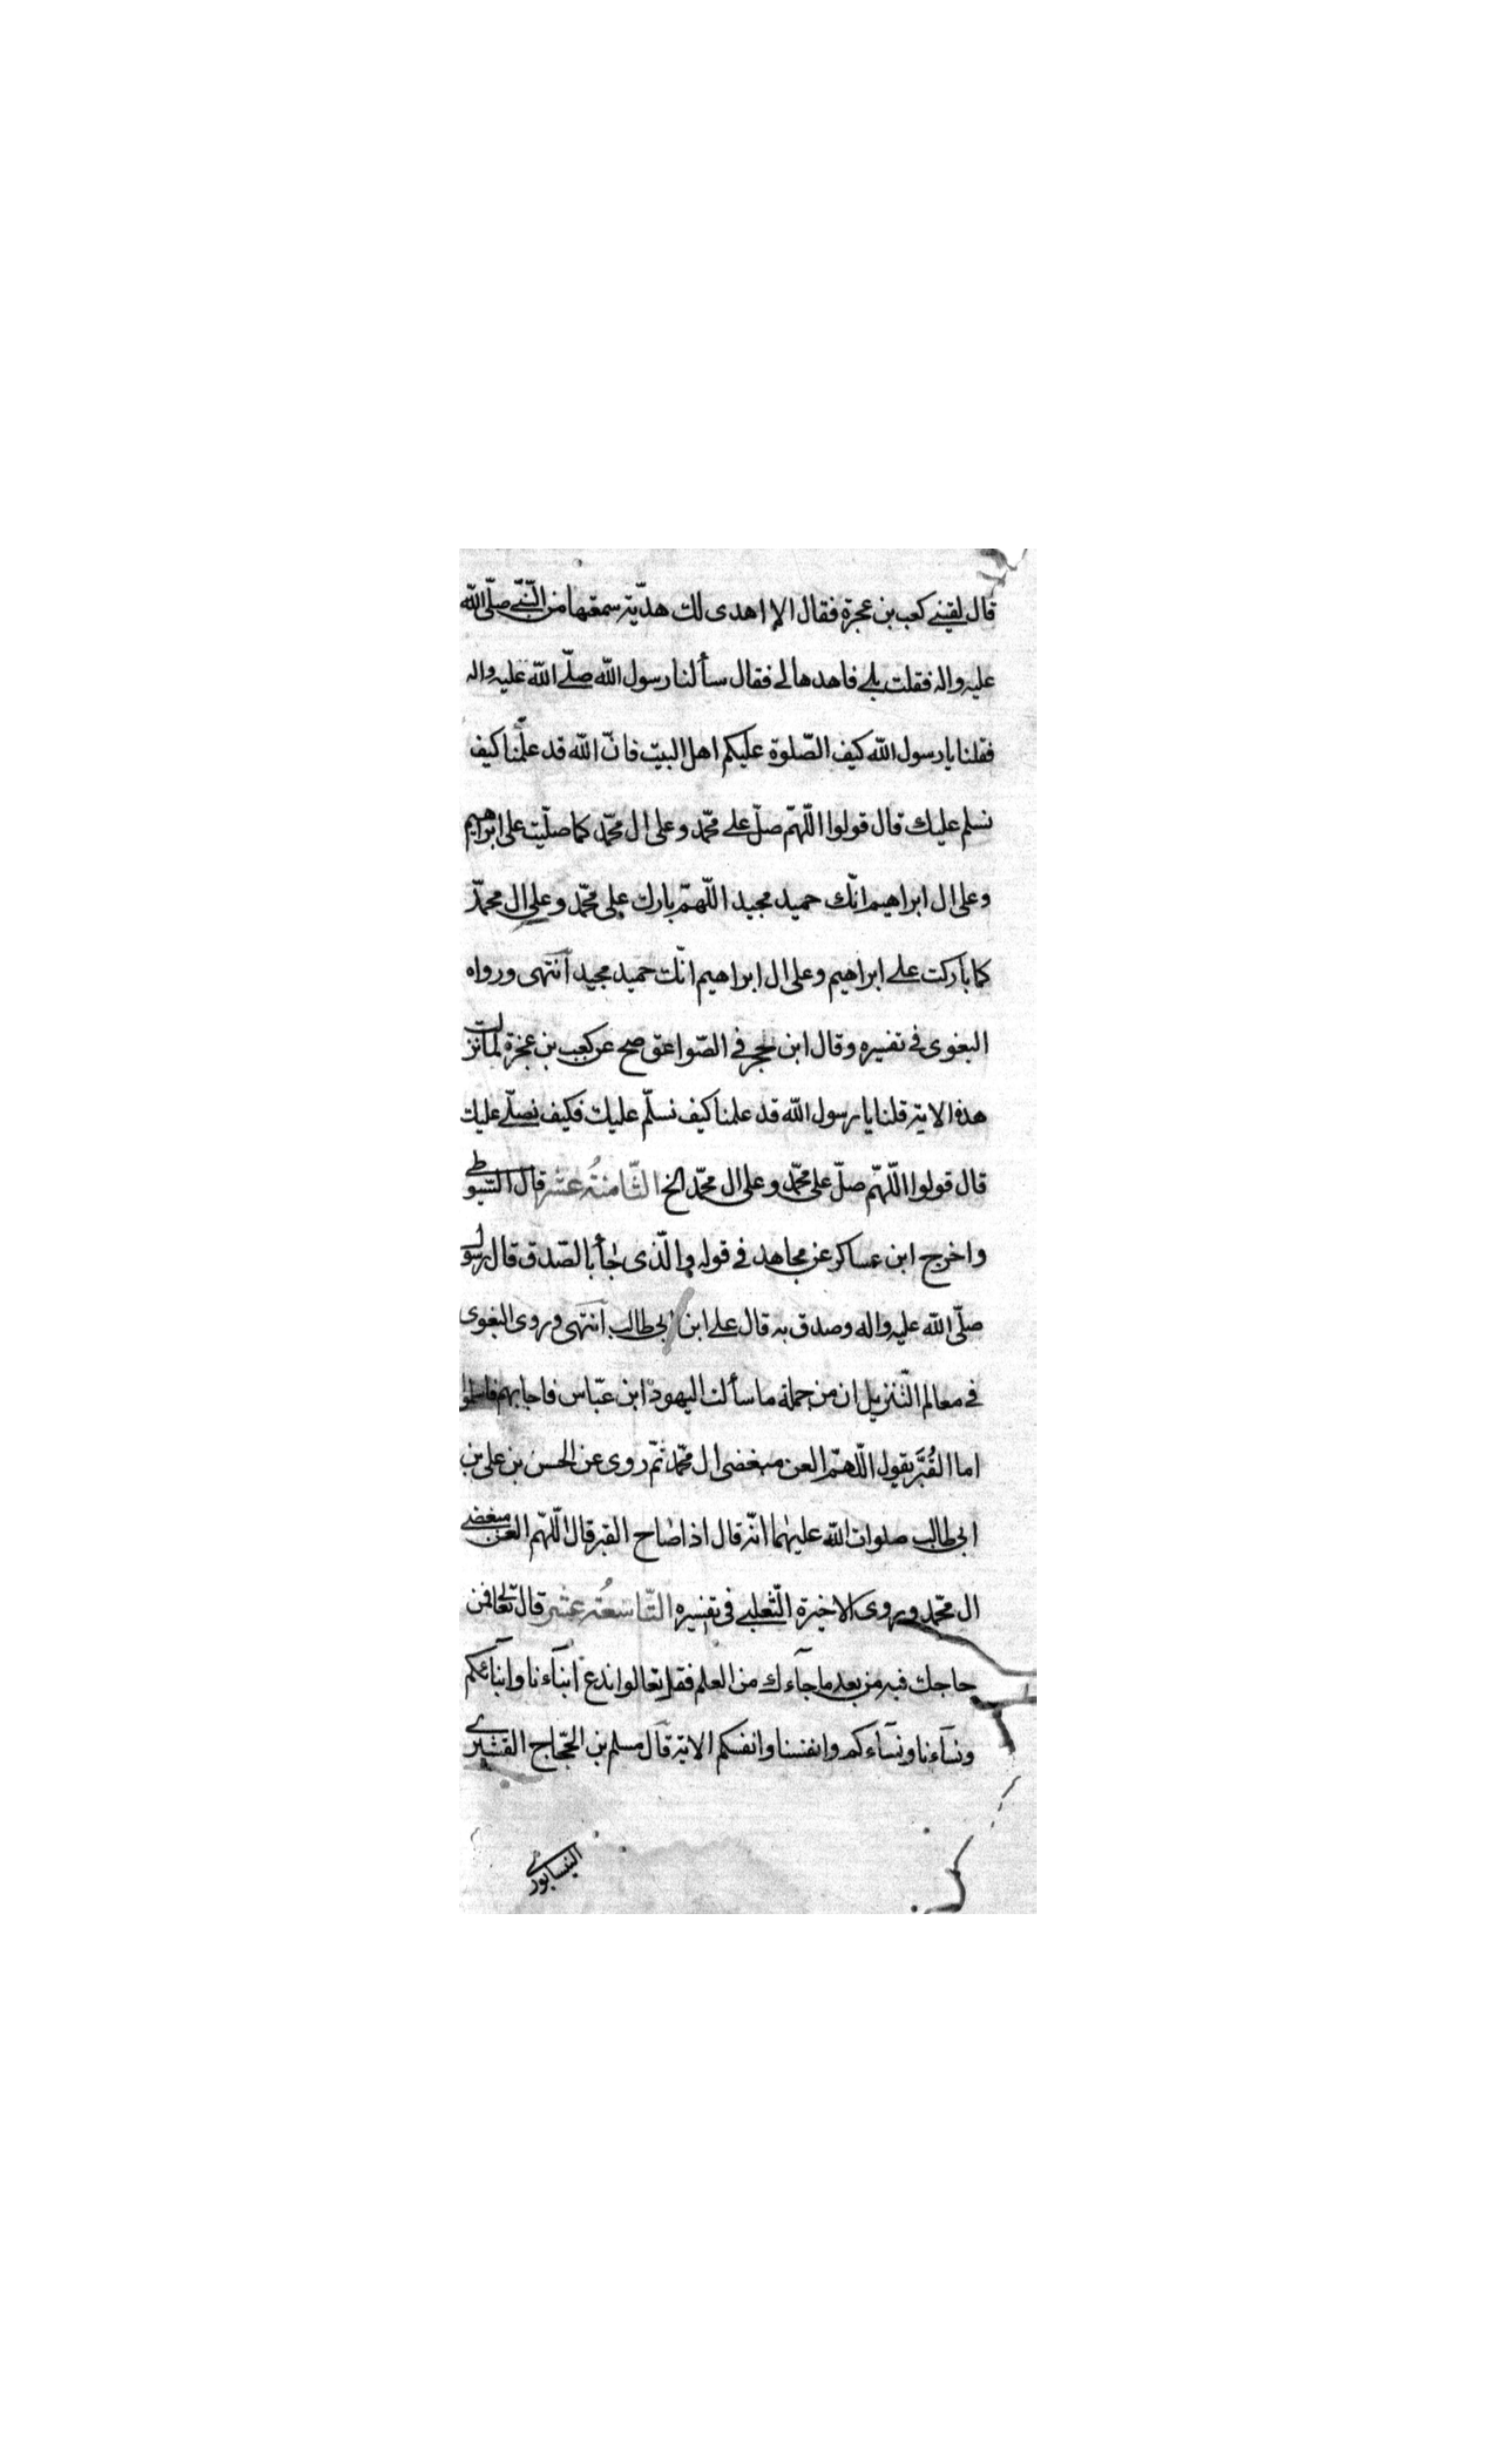 قال لقيني كعب بن عجرة فقال الا اهدى لك هديّة سمعتها من النّبيّ صلّى اللّه
عليه واله فقلت بلى فاهدها لي فقال سألنا رسول اللّه صلّى اللّه عليه واله
فقلنا يا رسول اللّه كيف الصّلوة عليكم اهل البيت فانّ اللّه قد علّمنا كيف
نسلم عليك قال قولوا اللّهمّ صلّ على محمّد وعلى ال محمّد كما صلّيت على ابراهيم
وعلى ال ابراهيم انّك حميد مجيد اللّهمّ بارك على محمّد وعلى ال محمّد
كما باركت على ابراهيم وعلى ال ابراهيم انّك حميد مجيد انتهى ورواه
البغوى في تفسيره وقال ابن حجر في الصّواعق صح عن كعب بن عجزة لما نزلت
هذه الاية قلنا يا رسول اللّه قد علمنا كيف نسلّم عليك فكيف نصلّى عليك
قال قولوا اللّهمّ صلّ على محمّد وعلى ال محمّد الخ الثّامنةُ عشر قال السّيوطى
واخرج ابن عساكر عن مجاهد في قوله والّذى جاء بالصّدق قال رسول
صلّى اللّه عليه واله وصدق به قال على ابن ابى طالب انتهى وروى البغوى
في معالم التّنزيل ان من جملة ما سألت اليهود ابن عبّاس فاجابهم فاسلموا
اما القُبَّر يقول اللّهمّ العن مبغضى ال محمّد ثمّ روى عن الحسن بن على بن
ابى طالب صلوات اللّه عليهما انّه قال اذا صاح القبر قال اللّهمّ العن مبغضى
ال محمّد وروى الاخيرة الثّعلبى فى تفسيره التّاسعُة عشر قال تعالى فمن
حاجك فيه من بعد ما جآءك من العلم فقل تعالوا ندع ابنآءنا وابنآئكم
ونسآءنا ونسآءكم وانفسنا وانفسكم الاية قال مسلم بن الحجّاج القشيرى
النيسابورى